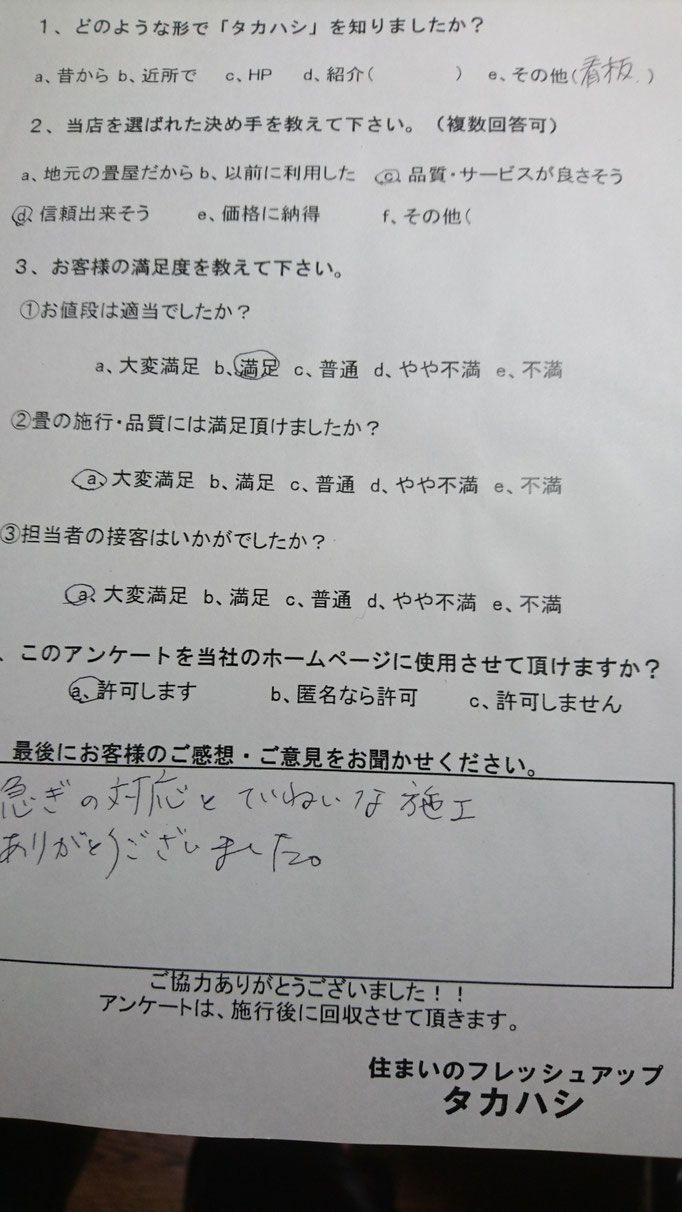 1、どのような形で「タカハシ」を知りましたか？
a、昔から b、近所で c、HP d、紹介（ ） e、その他（看板．）
2、当店を選ばれた決め手を教えて下さい。（複数回答可）
a、地元の畳屋だから b、以前に利用した c、品質・サービスが良さそう
d、信頼出来そう e、価格に納得 f、その他（
3、お客様の満足度を教えて下さい。
①お値段は適当でしたか？
a、大変満足 b、満足 c、普通 d、やや不満 e、不満
②畳の施行・品質には満足頂けましたか？
a、大変満足 b、満足 c、普通 d、やや不満 e、不満
③担当者の接客はいかがでしたか？
a、大変満足 b、満足 c、普通 d、やや不満 e、不満
、このアンケートを当社のホームページに使用させて頂けますか？
a、許可します b、匿名なら許可 c、許可しません
最後にお客様のご感想・ご意見をお聞かせください。
急ぎの対応とていねいな施工
ありがとうございました。
ご協力ありがとうございました！！
アンケートは、施行後に回収させて頂きます。
住まいのフレッシュアップ
タカハシ